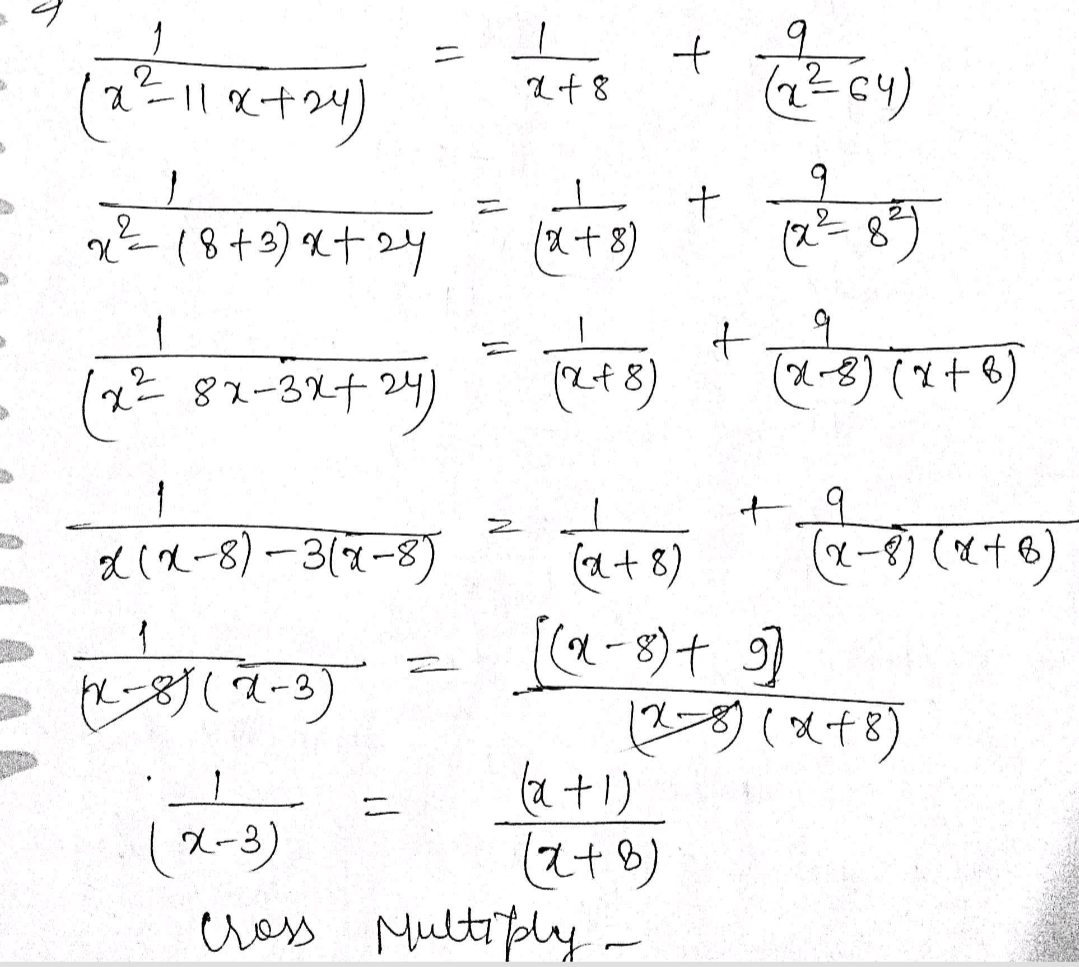 1/(x²-11x+24) = 1/x+8 + 9/(x²-64)
1/x²-(8+3)x+24 = 1/(x+8) + 9/(x²-8²)
1/(x²-8x-3x+24) = 1/(x+8) + 9/(x-8)(x+8)
1/x(x-8)-3(x-8) = 1/(x+8) + 9/(x-8)(x+8)
1/(x-8)(x-3) = [(x-8)+9]/(x-8)(x+8)
1/(x-3) = (x+1)/(x+8)
Cross Multiply -